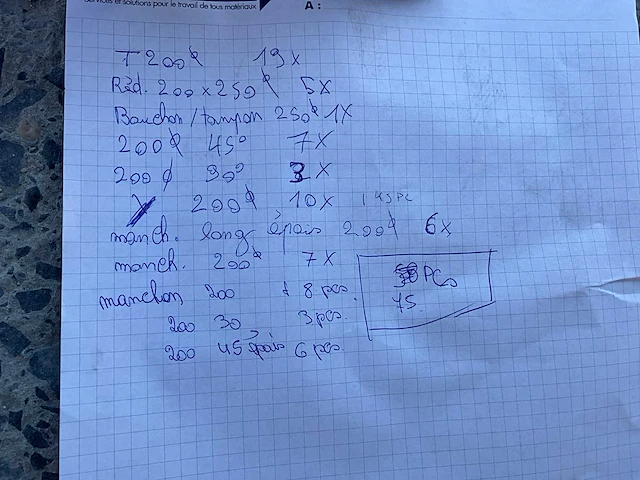 Services et solutions pour le travail de tous matériaux A :
T 200 φ 19 x
Réd. 200 x 250 φ 5 x
Bouchon / tampon 250 φ 1 x
200 φ 45° 7 x
200 φ 90° 3 x
Y 200 φ 10 x
manch. long épais 200 φ 6 x
manch. 200 φ 7 x
PCs
manchon 200 8 pcs.
45
200 30 3 pcs.
200 45 épais 6 pcs.